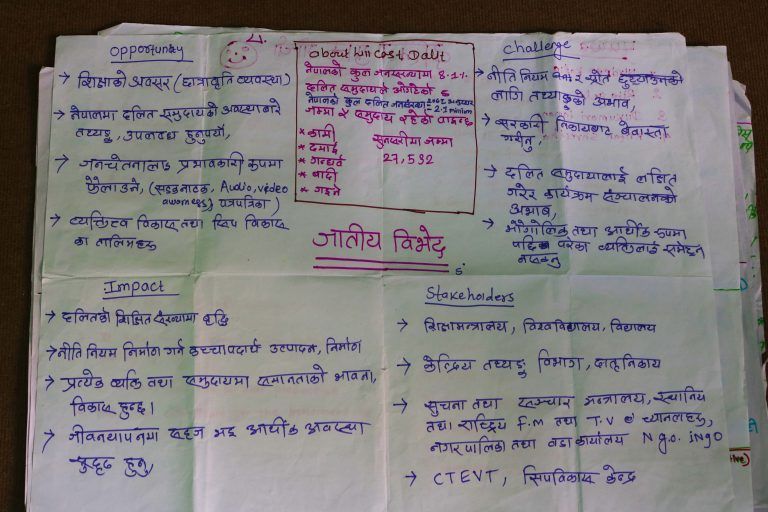 Opportunity
→ शिक्षाको अवसर (छात्रवृति व्यवस्था)
→ नेपालमा दलित समुदायको अवस्थाबारे
तथ्याङ्क, उपलब्ध हुनुपर्यो,
→ जनचेतनालाइ प्रभावकारी रुपमा
फैलाउने, (सडकनाटक, Audio, video
awarness, पत्रपत्रिका)
→ व्यक्तित्व विकास तथा सिप विकास
का तालिमहरु
About Low Cast Dalit
नेपालको कुल जनसंख्यामा 8.1%
दलित समुदायले ओगटेको
नेपालको कुल दलित जनसंख्या
= 2.1 minion
* कामी
* दमाई
* गन्धर्व
* बादी
* गाइने
सुनसरीमा जम्मा
27,532
Challenge
→ नीति नियम र स्रोत
लागि तथ्याङ्कको अभाव,
→ सरकारी निकायबाट बेवास्ता
गरीनु,
→ दलित समुदायलाई लक्षित
गरेर कार्यक्रम संचालनको
अभाव,
→ भौगोलिक तथा आर्थीक रुपमा
पछि परेका व्यक्तिलाइ समेट्न
नसक्नु
जातीय विभेद
Impact
→ दलितको शिक्षित संख्यामा बृद्धि
→ नीति नियम निर्माण गर्न कच्चापदार्थ उत्पादन, निर्माण
→ प्रत्येक व्यक्ति तथा समुदायमा समानताको भावना,
विकास हुन्छ।
→ जीवनयापनमा सहज भइ आर्थीक अवस्था
सुदृढ हुनु,
Stakeholders
→ शिक्षामन्त्रालय, विश्वविद्यालय, विद्यालय
→ केन्द्रिय तथ्याङ्क विभाग, दातृ निकाय
→ सुचना तथा सञ्चार मन्त्रालय, स्थानिय
तथा राष्ट्रिय F.M तथा T.V च्यानलहरु,
नगरपालिका तथा वडा कार्यालय N.g.o. iNGO
→ CTEVT, सिपविकास केन्द्र